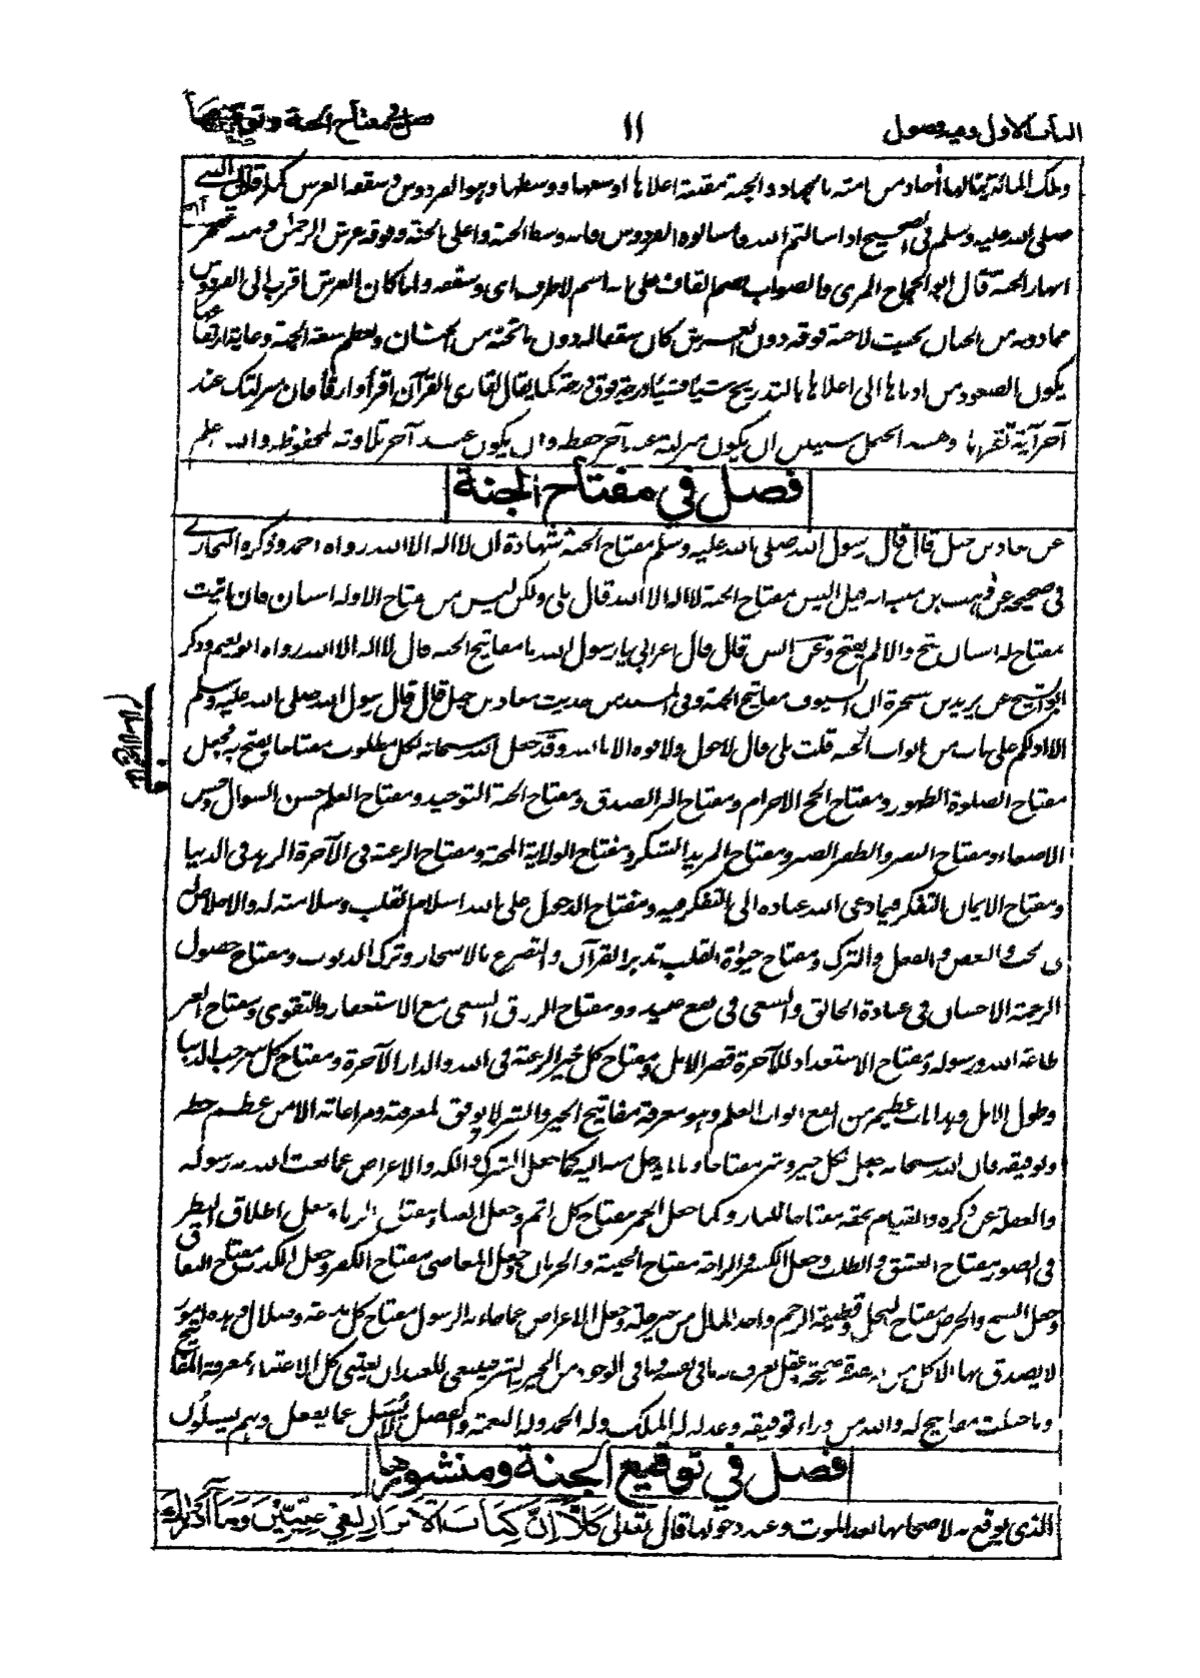 الباب الاول وفيه فصول
١١
فصل في مفتاح الجنة وتوقيعها
وتلك المائة ينالها آحاد من امته بالجهاد والجنة مقببة اعلاها اوسعها ووسطها وهو الفردوس وسقفه العرش كما قال النبي
صلى الله عليه وسلم في الصحيح اذا سالتم الله فاسالوه الفردوس فانه وسط الجنة واعلى الجنة وفوقه عرش الرحمن ومنه تفجر
انهار الجنة قال ابو الحجاج المزي والصواب بضم القاف على انه اسم لا ظرف اي وسقفه ولما كان العرش اقرب الى الفردوس
مما دونه من الجنان بحيث لا جنة فوقه دون العرش كان سقفا له دون ما تحته من الجنان ولعظم سعة الجنة وغاية ارتفاعها
يكون الصعود من ادناها الى اعلاها بالتدريج شيئا فشيئا درجة فوق درجة كما يقال لقارئ القرآن اقرأ وارقأ فان منزلتك عند
آخر آية تقرؤها وهذا يحتمل شيئين ان يكون منزلته عند آخر حفظه وان يكون عند آخر تلاوته لمحفوظه والله اعلم
فصل في مفتاح الجنة
عن معاذ بن جبل قال قال رسول الله صلى الله عليه وسلم مفتاح الجنة شهادة ان لا اله الا الله رواه احمد وذكره البخاري
في صحيحه عن وهب بن منبه انه قيل اليس مفتاح الجنة لا اله الا الله قال بلى ولكن ليس من مفتاح الا وله اسنان فان اتيت
مفتاح له اسنان فتح والا لم يفتح وعن انس قال قال اعرابي يا رسول الله ما مفاتيح الجنة قال لا اله الا الله رواه ابو نعيم وذكر
ابو الشيخ عن يزيد بن سخبرة ان السيوف مفاتيح الجنة وفي المسند من حديث معاذ بن جبل قال قال رسول الله صلى الله عليه وسلم
الا ادلكم على باب من ابواب الجنة قلت بلى قال لا حول ولا قوة الا بالله وقد جعل الله سبحانه لكل مطلوب مفتاحا يفتح به فجعل
مفتاح الصلوة الطهور ومفتاح الحج الاحرام ومفتاح البر الصدق ومفتاح الجنة التوحيد ومفتاح العلم حسن السوال وحسن
الاصغاء ومفتاح النصر والظفر الصبر ومفتاح المزيد الشكر ومفتاح الولاية المحبة ومفتاح الرغبة في الآخرة الزهد في الدنيا
ومفتاح الايمان التفكر فيما دعى الله عباده الى التفكر فيه ومفتاح الدخول على الله اسلام القلب وسلامته له والاخلاص له
في الحب والبغض والفعل والترك ومفتاح حيوة القلب تدبر القرآن والتضرع بالاسحار وترك الذنوب ومفتاح حصول
الرحمة الاحسان في عبادة الخالق والسعي في نفع عبيده ومفتاح الرزق السعي مع الاستغفار والتقوى ومفتاح العز
طاعة الله ورسوله ومفتاح الاستعداد للآخرة قصر الامل ومفتاح كل خير الرغبة في الله والدار الآخرة ومفتاح كل شر حب الدنيا
وطول الامل وهذا باب عظيم من انفع ابواب العلم وهو معرفة مفاتيح الخير والشر لا يوفق لمعرفته ومراعاته الا من عظم حظه
وتوفيقه فان الله سبحانه جعل لكل خير وشر مفتاحا وبابا يدخل منه اليه كما جعل الشرك والكبر والاعراض عما بعث الله به رسوله
والغفلة عن ذكره والقيام بحقه مفتاحا للنار وكما جعل الخمر مفتاح كل اثم وجعل الغناء مفتاح الزناء وجعل اطلاق النظر
في الصور مفتاح العشق والطلب وجعل الكسل والراحة مفتاح الخيبة والحرمان وجعل المعاصي مفتاح الكفر وجعل الكذب مفتاح النفاق
وجعل الشح والحرص مفتاح البخل وقطيعة الرحم واخذ المال من غير حله وجعل الاعراض عما جاء به الرسول مفتاح كل بدعة وضلال وهذه امور
لا يصدق بها الا كل من له بصيرة صحيحة وعقل يعرف به ما في نفسه وما في الوجود من الخير والشر فينبغي للعبد ان يعتني كل الاعتناء بمعرفة المفاتيح
وما جعلت مفاتيح له والله من وراء توفيقه وعدله له الملك وله الحمد وله النعمة والفضل لا يسئل عما يفعل وهم يسئلون
فصل في توقيع الجنة ومنشورها
الذي يوقع به لاصحابها بعد الموت وعند دخولها قال تعالى كَلَّا إِنَّ كِتَابَ الْأَبْرَارِ لَفِي عِلِّيِّينَ وَمَا أَدْرَاكَ